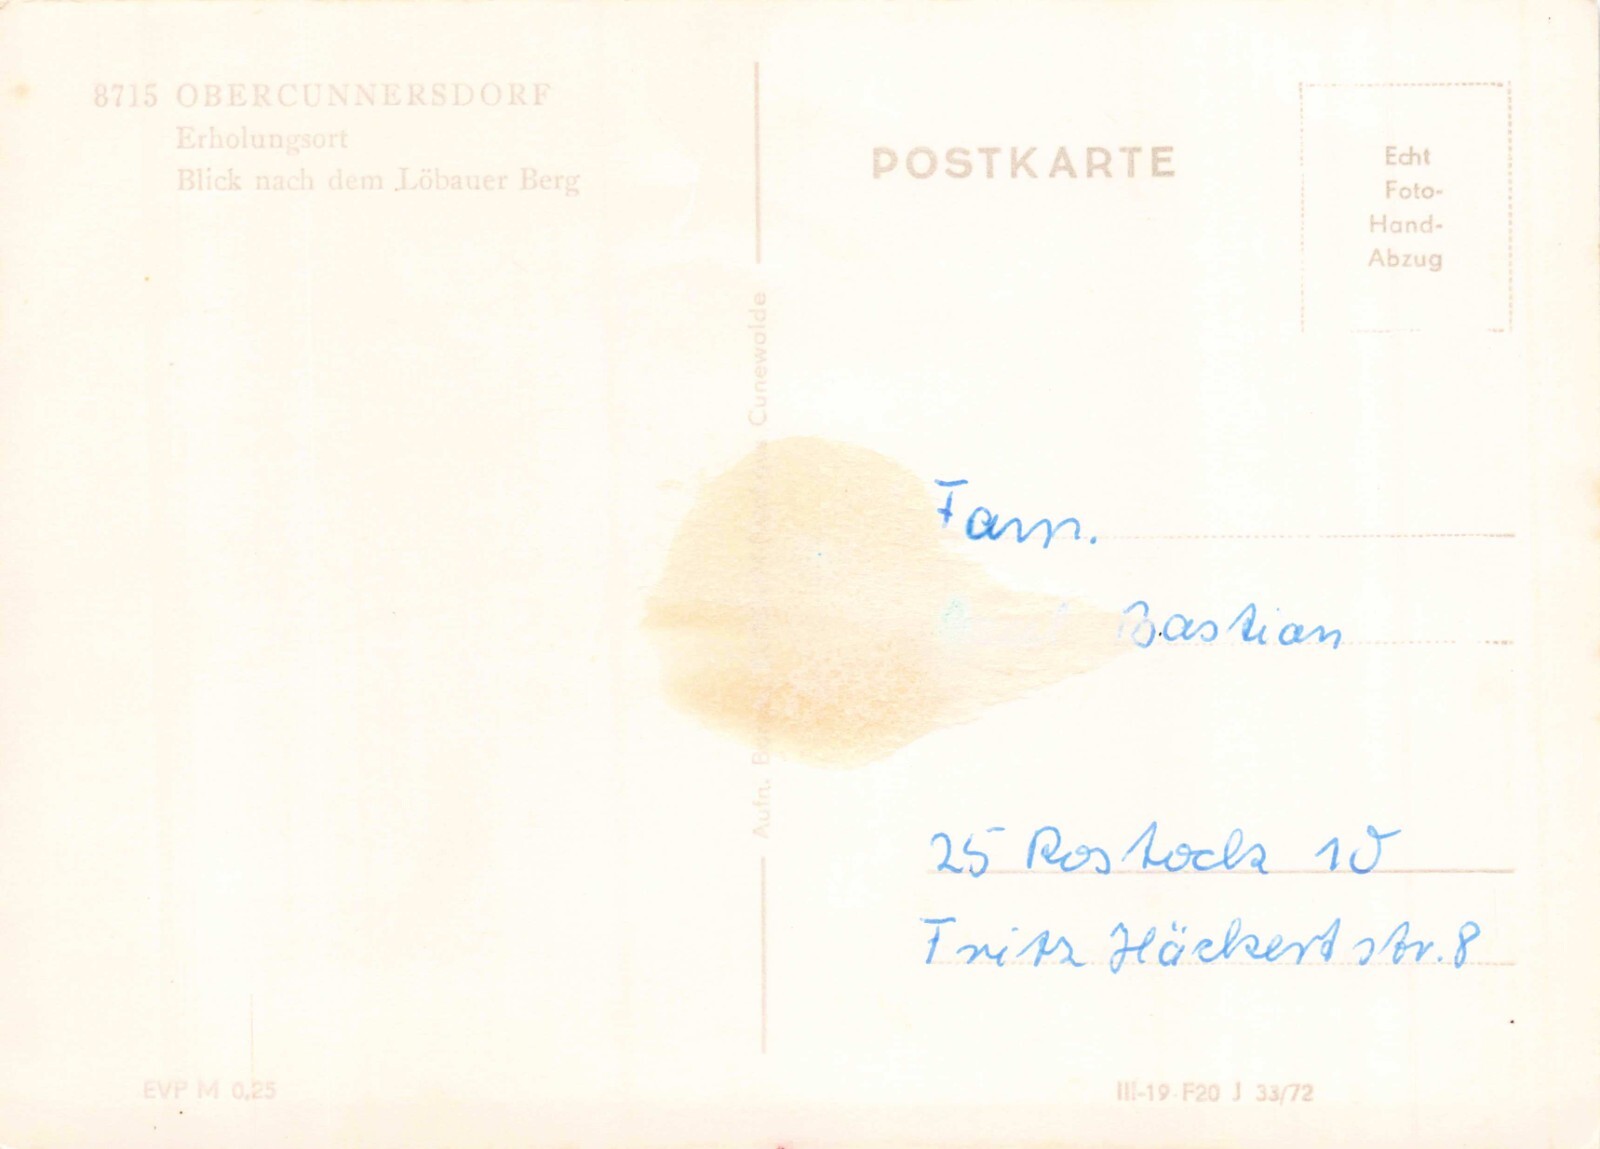 8715 OBERCUNNERSDORF
Erholungsort
Blick nach dem Löbauer Berg
POSTKARTE
Echt
Foto-
Hand-
Abzug
Aufn. Cunewalde
Fam.
Bastian
25 Rostock 10
Fritz Häckert str. 8
EVP M 0,25
III-19 F20 J 33/72